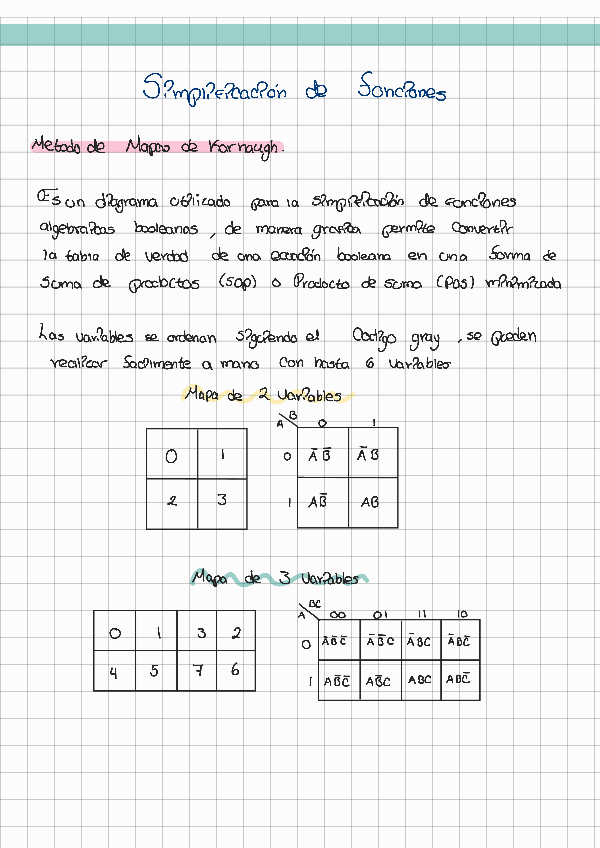 Simplificación de funciones
Metodo de Mapas de Karnaugh.
Es un diagrama utilizado para la simplificación de funciones
algebraicas booleanas, de manera grafica permite convertir
la tabla de verdad de una ecuación booleana en una forma de
suma de productos (sop) o Producto de suma (Pos) minimizada
Las variables se ordenan siguiendo el Codigo gray, se pueden
realizar facilmente a mano con hasta 6 variables
Mapa de 2 variables
A B 0 1
0 1 0 A̅ B̅ A̅ B
2 3 1 A B̅ AB
Mapa de 3 variables
A BC 00 01 11 10
0 1 3 2 0 A̅B̅C̅ A̅B̅C A̅BC A̅BC̅
4 5 7 6 1 AB̅C̅ AB̅C ABC ABC̅